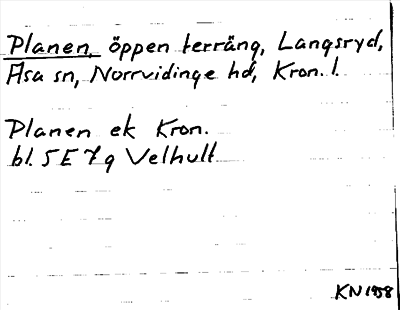 Planen, öppen terräng, Langsryd,
Asa sn, Norrvidinge hd, Kron. l.
Planen ek Kron.
bl. 5E 7g Velhult
KN 1958